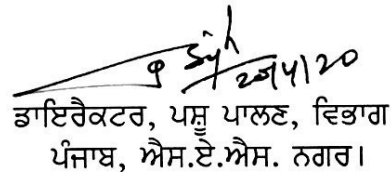 ਡਾਇਰੈਕਟਰ, ਪਸ਼ੂ ਪਾਲਣ, ਵਿਭਾਗ
ਪੰਜਾਬ, ਐਸ.ਏ.ਐਸ. ਨਗਰ।